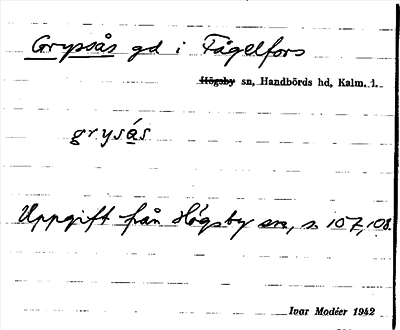 Grypsås gd i Fågelfors
Högsby sn, Handbörds hd, Kalm. l.
grysás
Uppgift från Högsby sn, s. 107, 108.
Ivar Modéer 1942